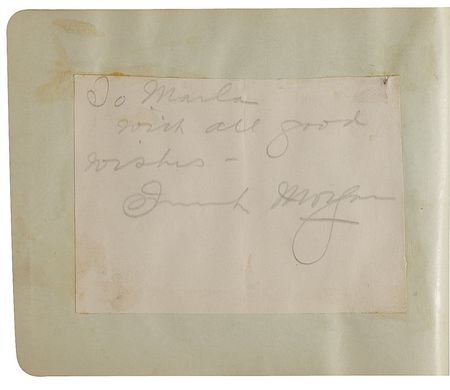 To Marla
with all good
wishes -
Frank Morgan